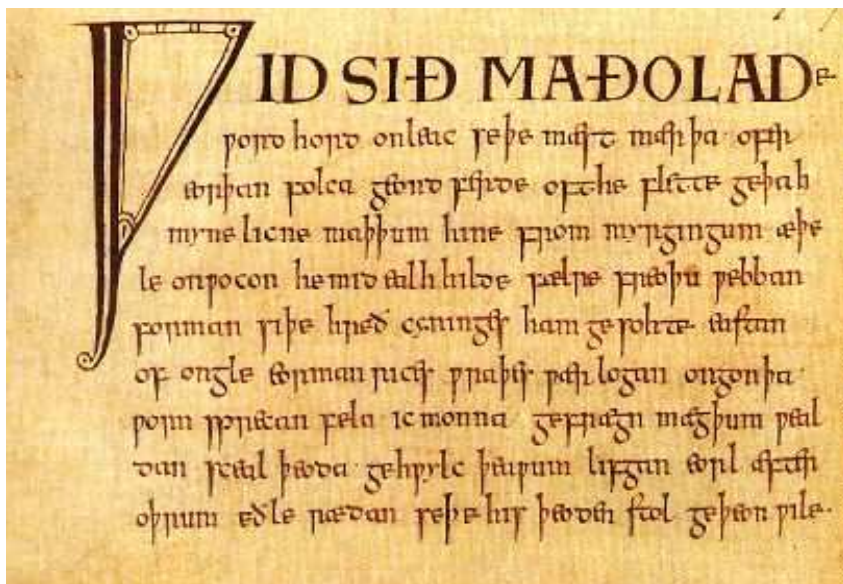 ǷIDSIÐ MAÐOLADe
ƿord hord onleac seþe mæst mærþa ofer
eorþan folca geond ferde oft he flette geþah
myne licne maþþum hine from myrgingum æþe
le onƿocon he mid ealh hilde fælre freoþu ƿebban
forman siþe hreð cyninges ham ge sohte· eastan
of ongle eorman rices ƿraþes ƿær logan ongon þa·
ƿorn sprecan fela ic monna gefrægn mægþum ƿeal
dan sceal þeoda gehƿylc þeaƿum lifgan eorl æfter
oþrum eðle rædan seþe his þeoden stol geþeon ƿile·